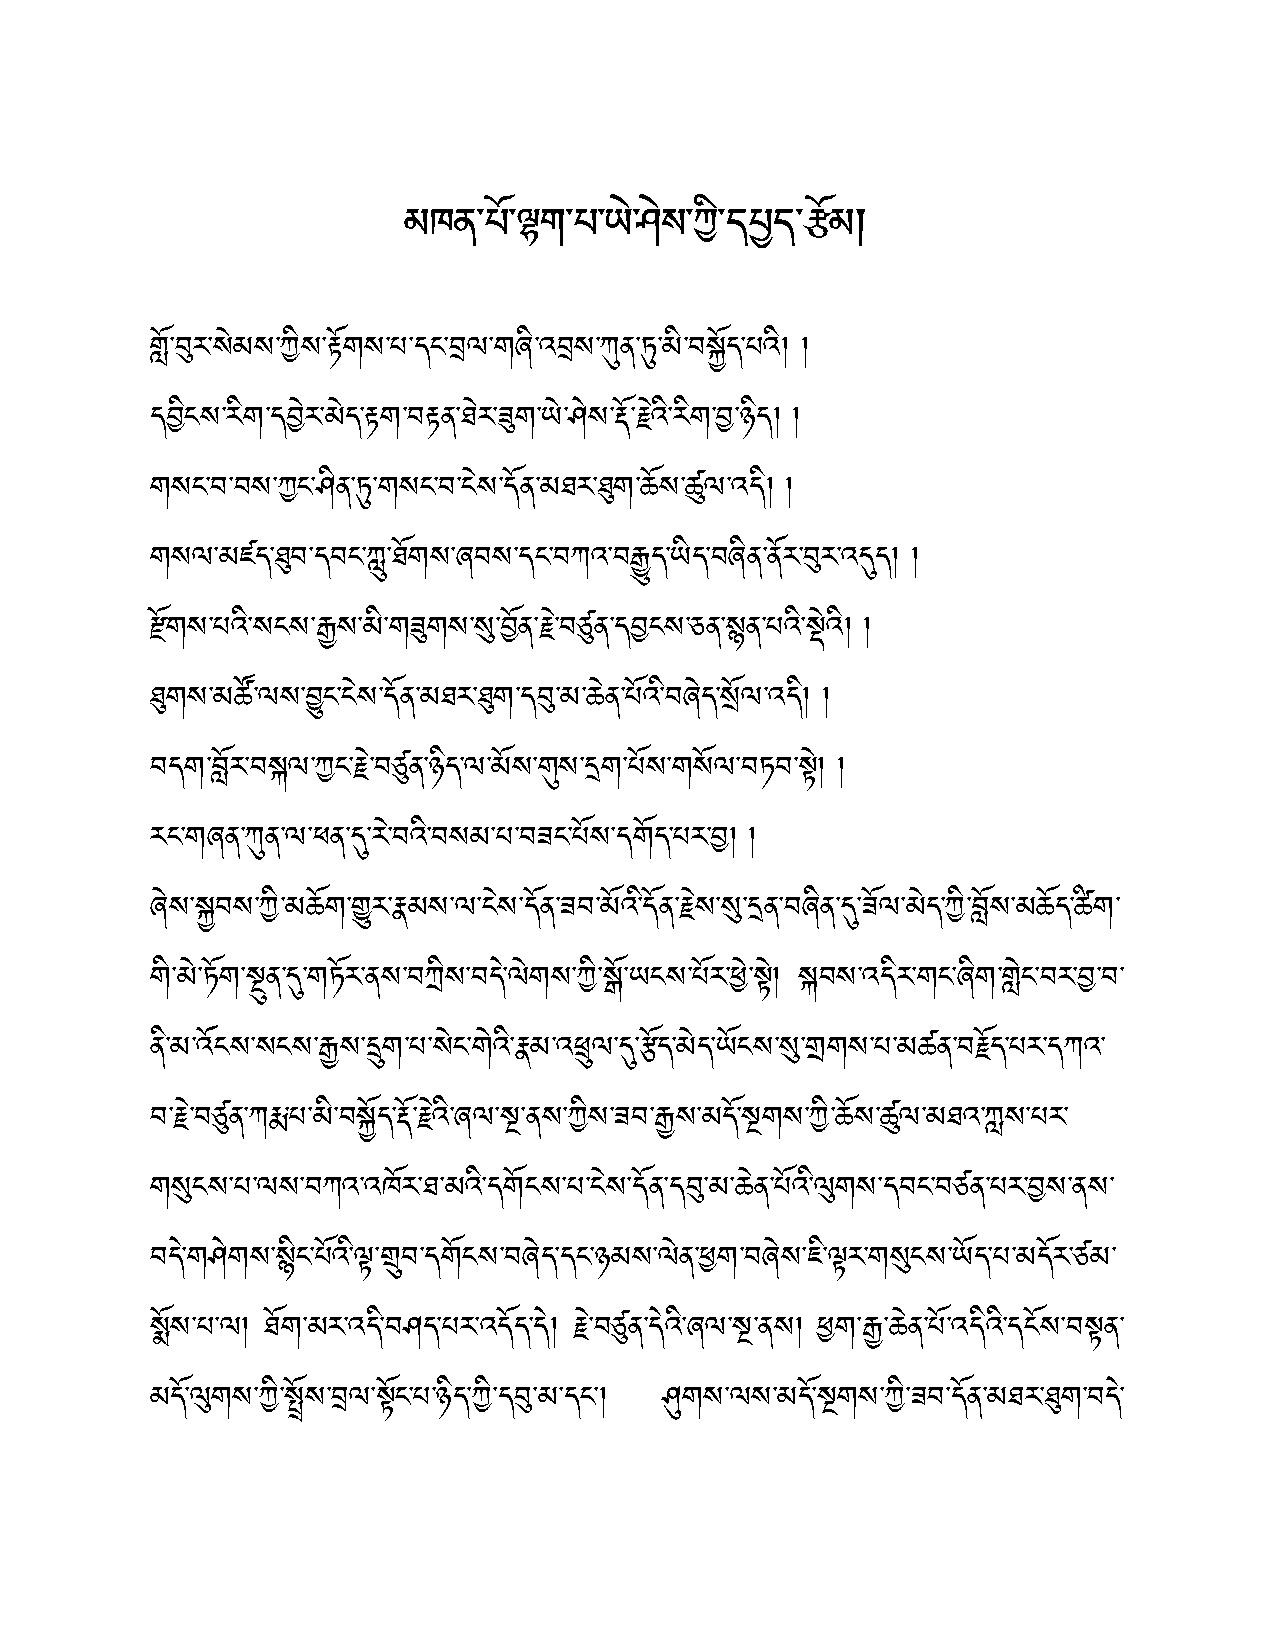 མཁན་པོ་ལྷག་པ་ཡེ་ཤེས་ཀྱི་དཔྱད་རྩོམ།
གློ་བུར་སེམས་ཀྱིས་རྟོགས་པ་དང་བྲལ་གཞི་འབྲས་ཀུན་ཏུ་མི་བསྐྱོད་པའི། །
དབྱིངས་རིག་དབྱེར་མེད་རྟག་བརྟན་ཐེར་ཟུག་ཡེ་ཤེས་རྡོ་རྗེའི་རིག་བྱ་ཉིད། །
གསང་བ་བས་ཀྱང་ཤིན་ཏུ་གསང་བ་ངེས་དོན་མཐར་ཐུག་ཆོས་ཚུལ་འདི། །
གསལ་མཛད་ཐུབ་དབང་ཀླུ་ཐོགས་ཞབས་དང་བཀའ་བརྒྱུད་ཡིད་བཞིན་ནོར་བུར་འདུད། །
རྫོགས་པའི་སངས་རྒྱས་མི་གཟུགས་སུ་བྱོན་རྗེ་བཙུན་དབྱངས་ཅན་སྙན་པའི་སྡེའི། །
ཐུགས་མཚོ་ལས་བྱུང་ངེས་དོན་མཐར་ཐུག་དབུ་མ་ཆེན་པོའི་བཞེད་སྲོལ་འདི། །
བདག་བློར་བསྐལ་ཀྱང་རྗེ་བཙུན་ཉིད་ལ་མོས་གུས་དྲག་པོས་གསོལ་བཏབ་སྟེ། །
རང་གཞན་ཀུན་ལ་ཕན་དུ་རེ་བའི་བསམ་པ་བཟང་པོས་དགོད་པར་བྱ། །
ཞེས་སྐྱབས་ཀྱི་མཆོག་གྱུར་རྣམས་ལ་ངེས་དོན་ཟབ་མོའི་དོན་རྗེས་སུ་དྲན་བཞིན་དུ་ཟོལ་མེད་ཀྱི་བློས་མཆོད་ཚིག་
གི་མེ་ཏོག་སྔུན་དུ་གཏོར་ནས་བཀྲིས་བདེ་ལེགས་ཀྱི་སྒོ་ཡངས་པོར་ཕྱེ་སྟེ། སྐབས་འདིར་གང་ཞིག་གླེང་བར་བྱ་བ་
ནི་མ་འོངས་སངས་རྒྱས་དྲུག་པ་སེང་གེའི་རྣམ་འཕྲུལ་དུ་རྩོད་མེད་ཡོངས་སུ་གྲགས་པ་མཚན་བརྗོད་པར་དཀའ་
བ་རྗེ་བཙུན་ཀརྨ་པ་མི་བསྐྱོད་རྡོ་རྗེའི་ཞལ་སྔ་ནས་ཀྱིས་ཟབ་རྒྱས་མདོ་སྔགས་ཀྱི་ཆོས་ཚུལ་མཐའ་ཀླས་པར་
གསུངས་པ་ལས་བཀའ་འཁོར་ཐ་མའི་དགོངས་པ་ངེས་དོན་དབུ་མ་ཆེན་པོའི་ལུགས་དབང་བཙན་པར་བྱས་ནས་
བདེ་གཤེགས་སྙིང་པོའི་ལྟ་གྲུབ་དགོངས་བཞེད་དང་ཉམས་ལེན་ཕྱག་བཞེས་ཇི་ལྟར་གསུངས་ཡོད་པ་མདོར་ཙམ་
སྨོས་པ་ལ། ཐོག་མར་འདི་བཤད་པར་འདོད་དེ། རྗེ་བཙུན་དེའི་ཞལ་སྔ་ནས། ཕྱག་རྒྱ་ཆེན་པོ་འདིའི་དངོས་བསྟན་
མདོ་ལུགས་ཀྱི་སྤྲོས་བྲལ་སྟོང་པ་ཉིད་ཀྱི་དབུ་མ་དང་། ཤུགས་ལས་མདོ་སྔགས་ཀྱི་ཟབ་དོན་མཐར་ཐུག་བདེ་